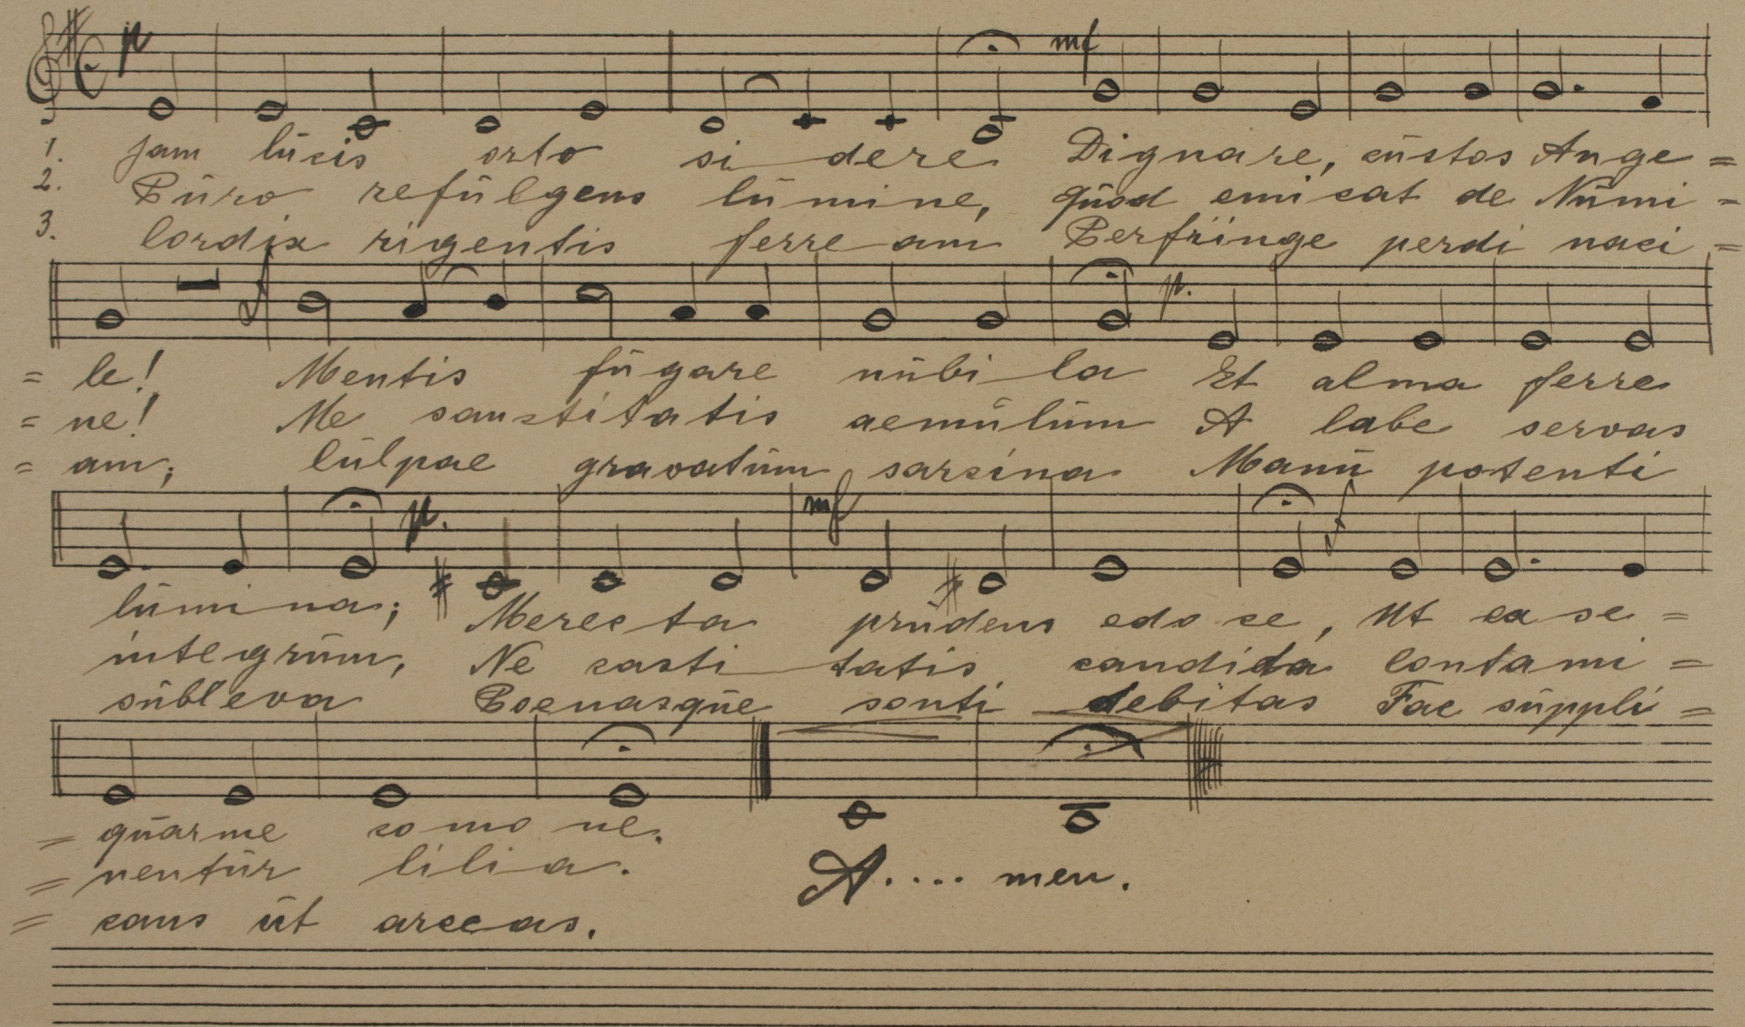 p mf
1. Jam lūcis orto si dere Dignare, cūstos Ange =
2. Pūro refūlgens lūmine, qūod emicat de Nūmi =
3. Cordis rigentis ferre am Perfringe perdi naci =
p.
= le! Mentis fūgare nūbi la Et alma ferre
= ne! Me sanctitatis aemūlūm A labe servas
= am; Cūlpae gravatūm sarcina Manū potenti
p. mf
lūmina; Merecta prūdens edo ce, Ut ea se =
integrūm, Ne casti tatis candida contami =
sūbleva Poenasqūe sonti debitas Fac sūppli =
= qūarme como ne.
= nentūr lilia. A.... men.
= cans ūt arceas.